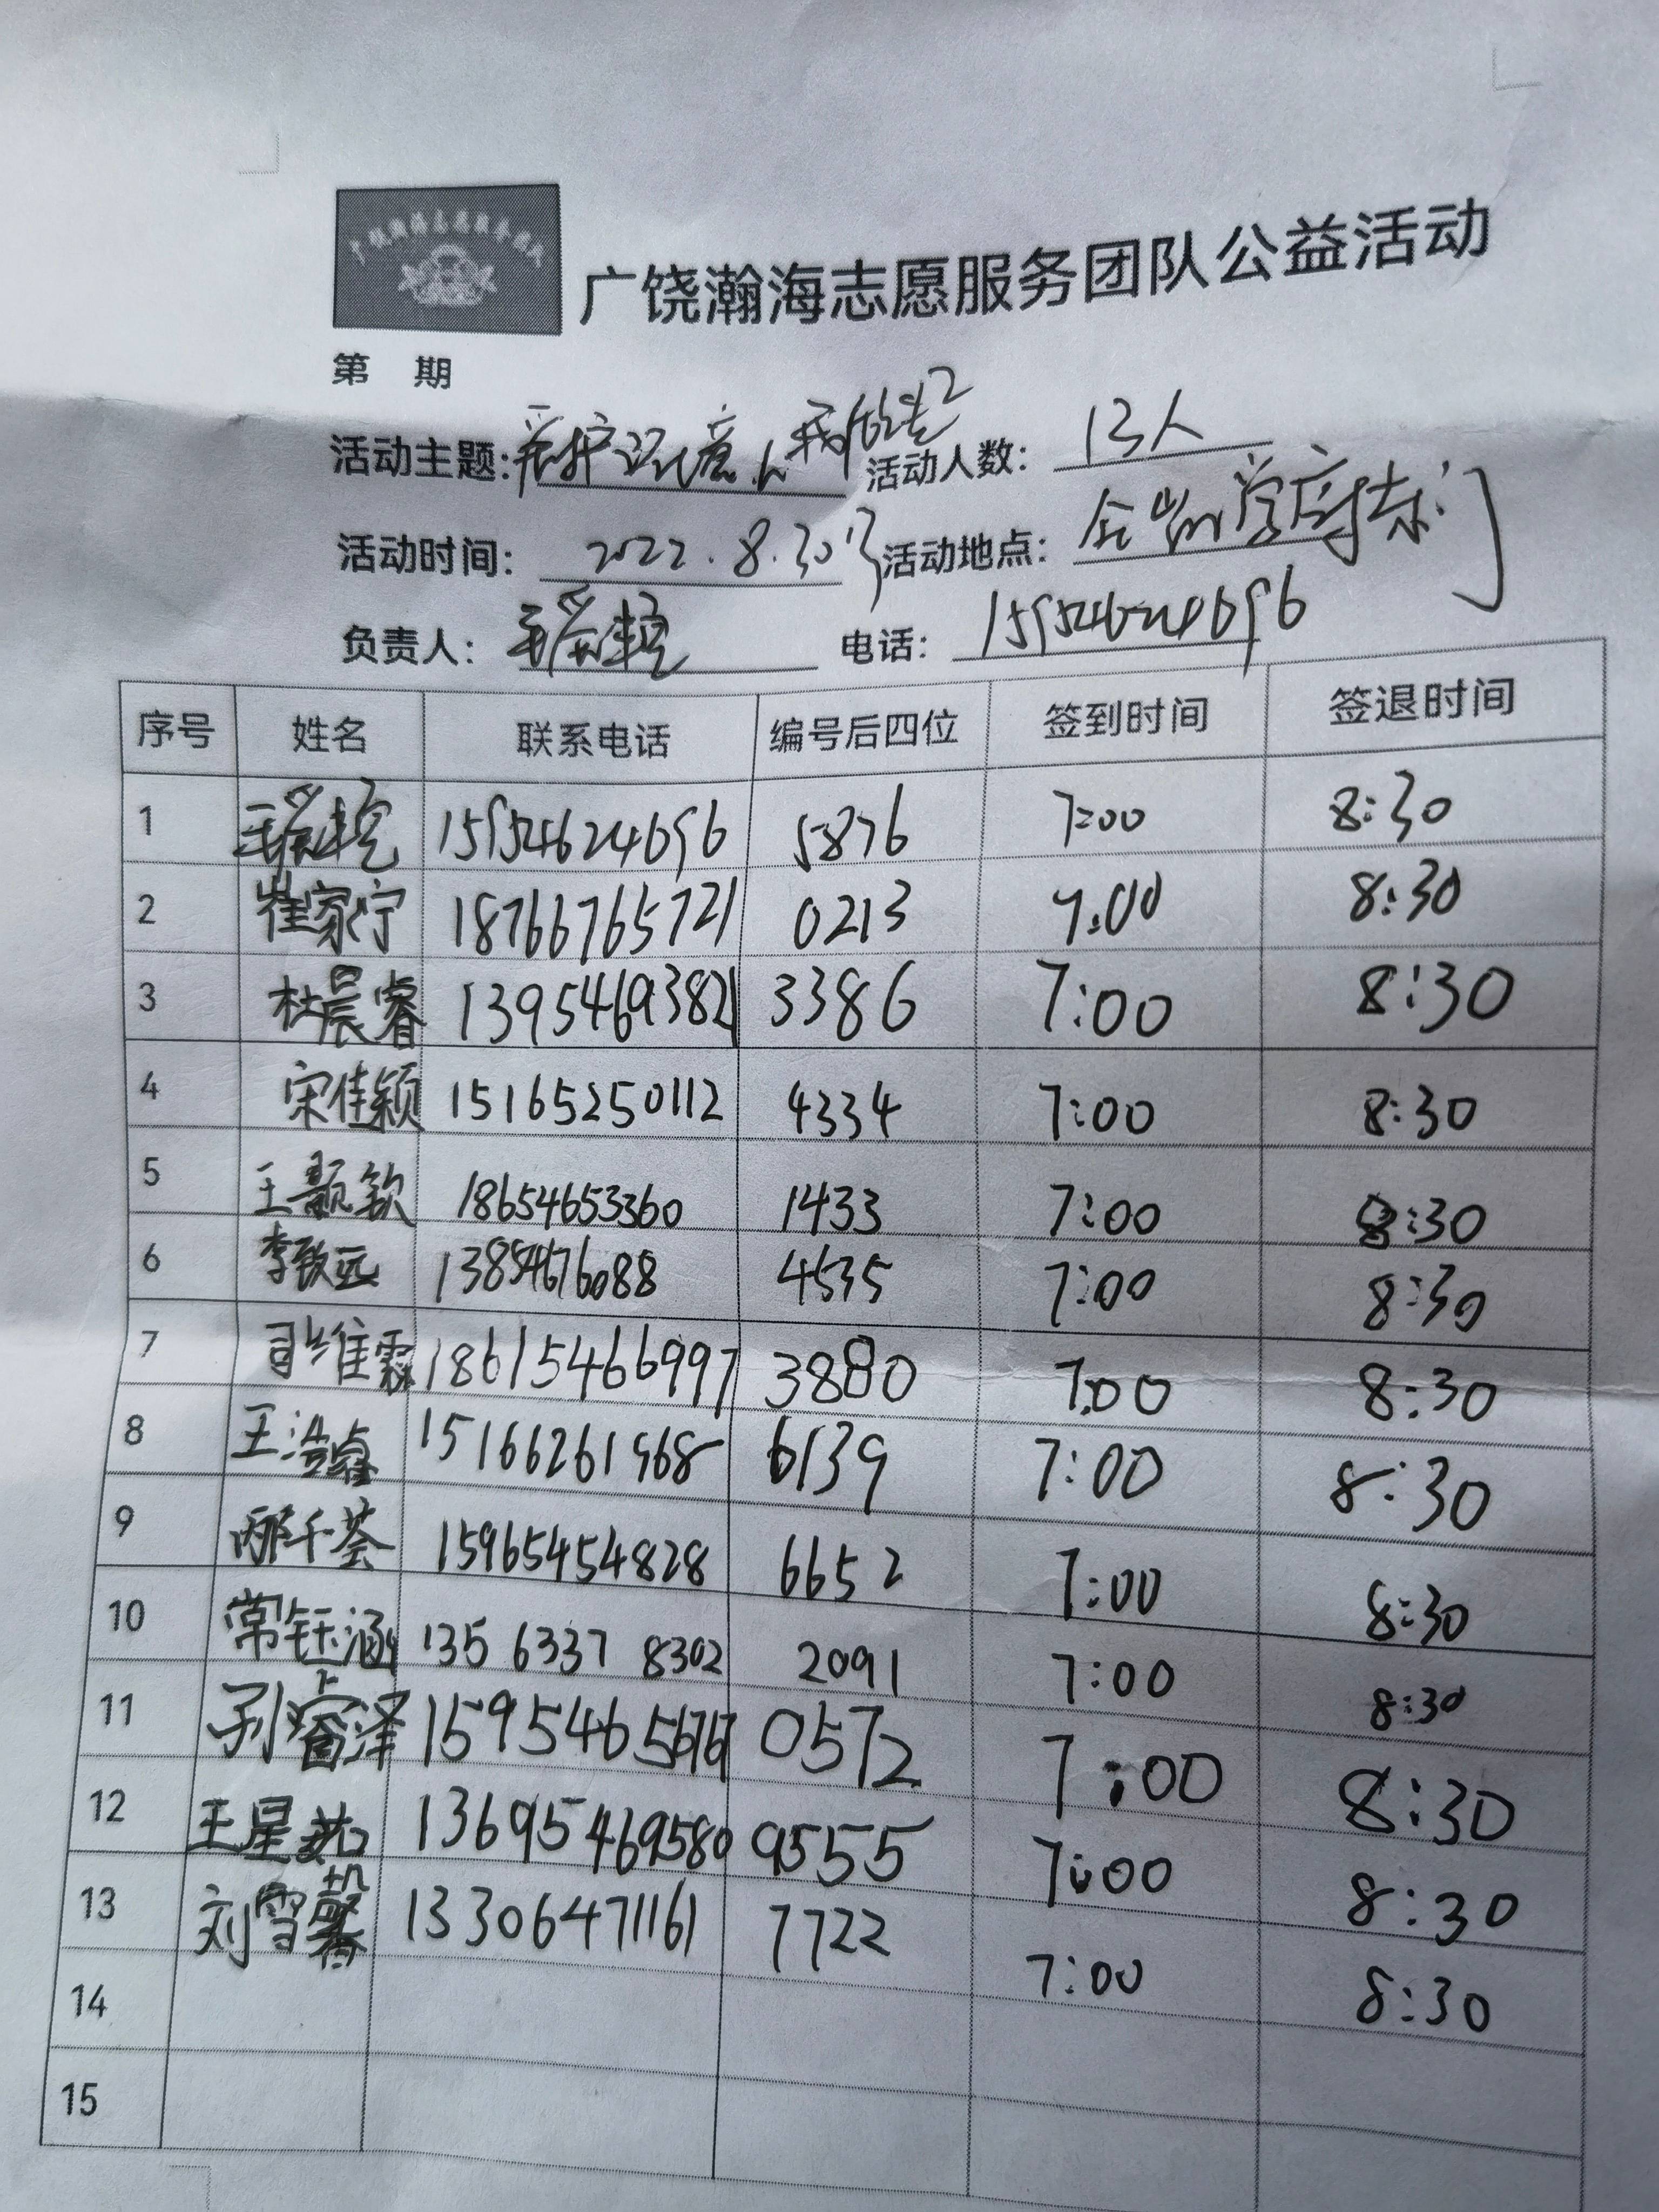 广饶瀚海志愿服务团队公益活动
第 期
活动主题: 活动人数: 13人
活动时间: 2022.8.30 活动地点: 学府东门
负责人: 电话: 15954624696
序号 姓名 联系电话 编号后四位 签到时间 签退时间
1 15954624696 5876 7:00 8:30
2 崔家宁 18766765721 0213 7:00 8:30
3 杜晨睿 13954693821 3386 7:00 8:30
4 宋佳颖 15165250112 4334 7:00 8:30
5 王颢钦 18654653360 1433 7:00 8:30
6 李致远 13854676088 4535 7:00 8:30
7 司维霖 18615466997 3880 7:00 8:30
8 王浩睿 15166261968 6139 7:00 8:30
9 邴千荟 15965454828 6652 7:00 8:30
10 常钰涵 135 6337 8302 2091 7:00 8:30
11 孙睿泽 15954656767 0572 7:00 8:30
12 王星茹 13695469580 9555 7:00 8:30
13 刘雪馨 13306471161 7722 7:00 8:30
14
15